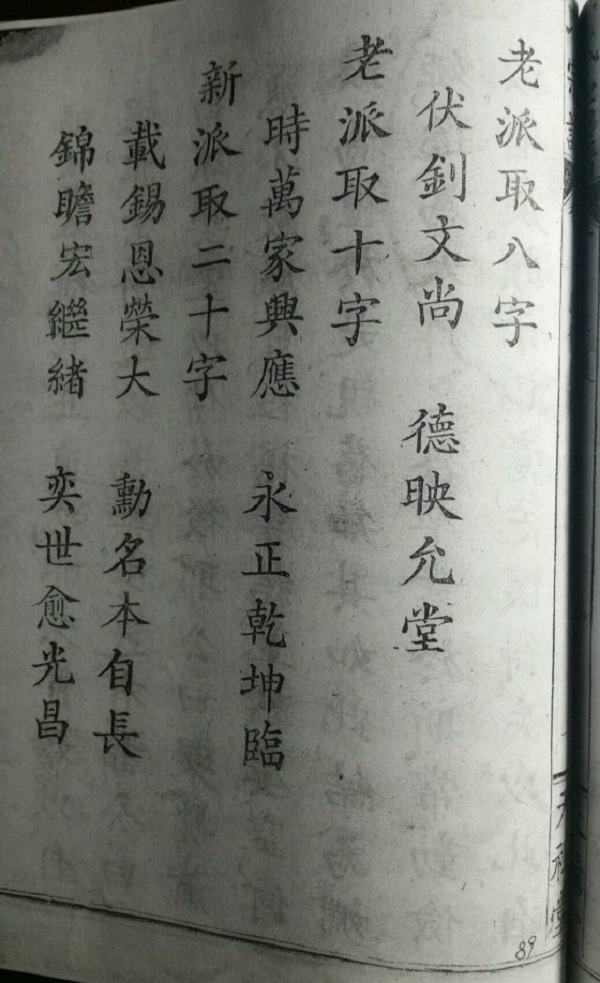 老派取八字
伏釗文尚 德映允堂
老派取十字
時萬家興應 永正乾坤臨
新派取二十字
載錫恩榮大 勳名本自長
錦瞻宏繼緒 奕世愈光昌
89